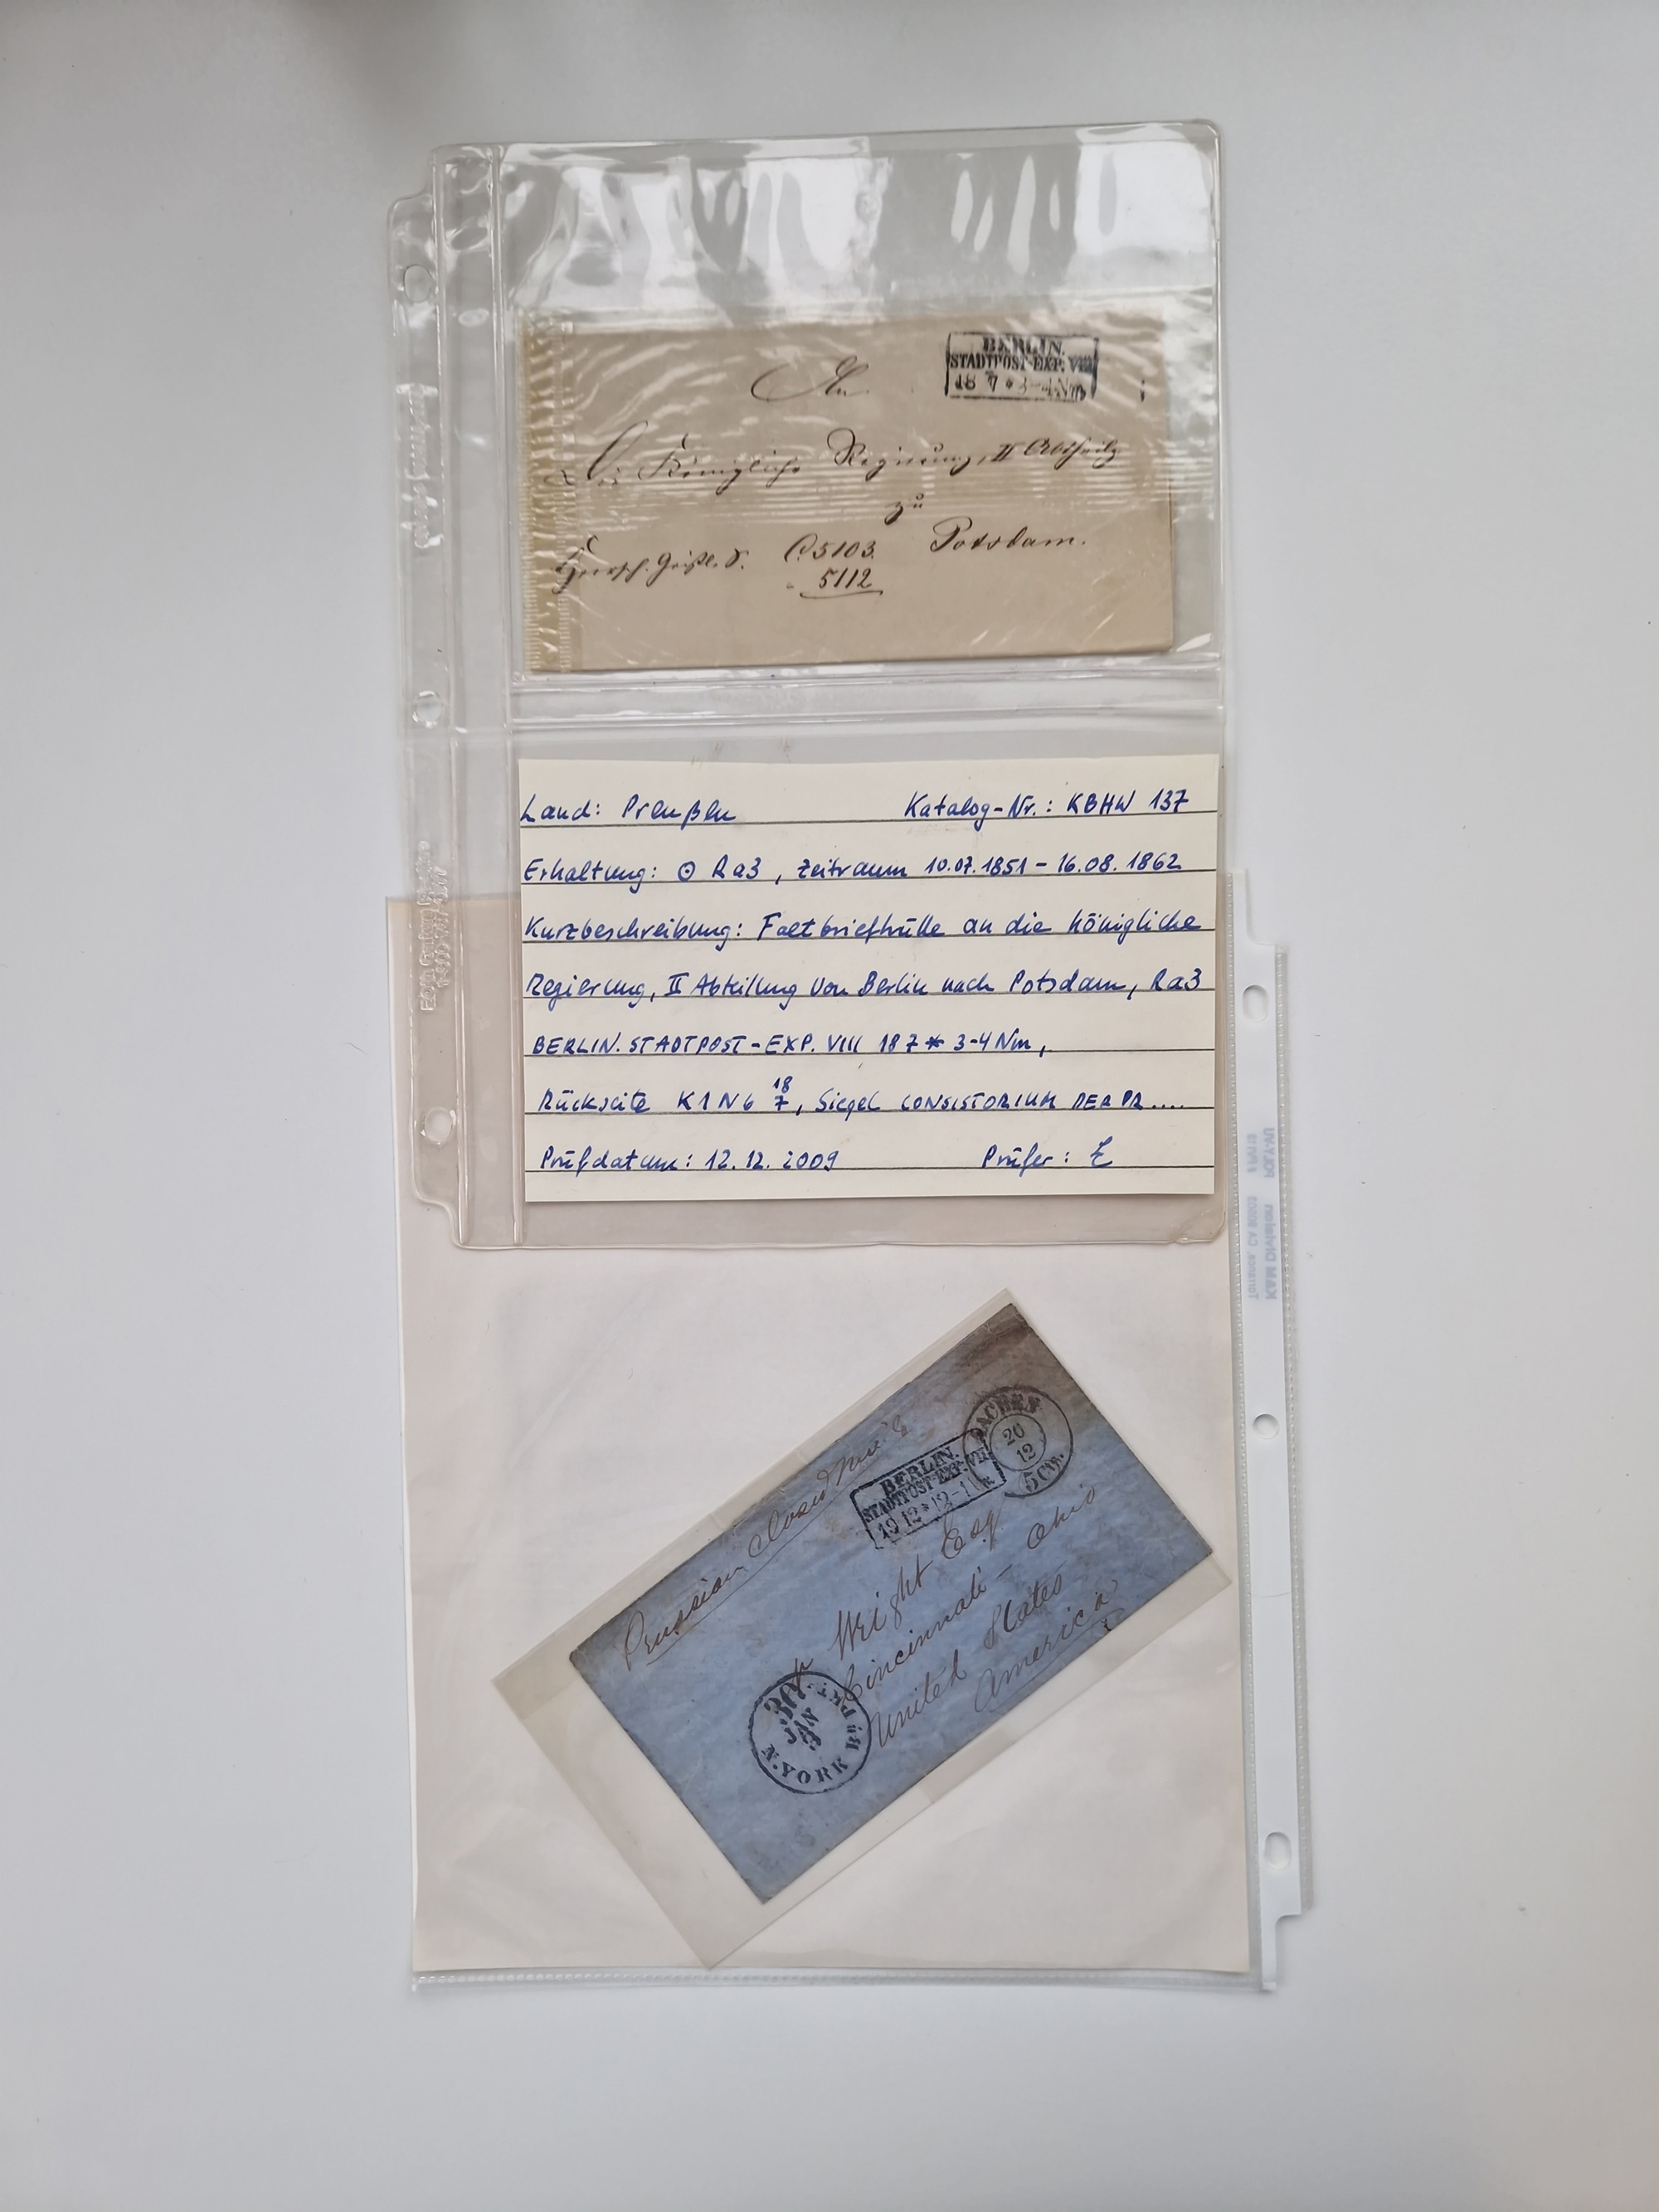 BERLIN.
STADTPOST-EXP. VIII
18 7 * 3-4 Nm
An
Die Königliche Regierung, II Abtheilg
zu
Potsdam.
C. 5103.
5112
Land: Preußen Katalog-Nr.: KBHW 137
Erhaltung: ⊙ Ra3, Zeitraum 10.07.1851 - 16.08.1862
Kurzbeschreibung: Faltbriefhülle an die Königliche
Regierung, II Abteilung von Berlin nach Potsdam, Ra3
BERLIN. STADTPOST-EXP. VIII 18 7 * 3-4 Nm,
Rückseite K1 N6 18/7, Siegel CONSISTORIUM DER PR....
Prüfdatum: 12.12.2009 Prüfer: E
KAM Division POLY.VU
Torrance, CA 90503
Prussian closed mail
BERLIN.
STADTPOST-EXP. VII
19 12 * 12-1
AACHEN
20
12
Wright Esq
Cincinnati - Ohio
United States
America
30
JAN
N.YORK Br. PKT.